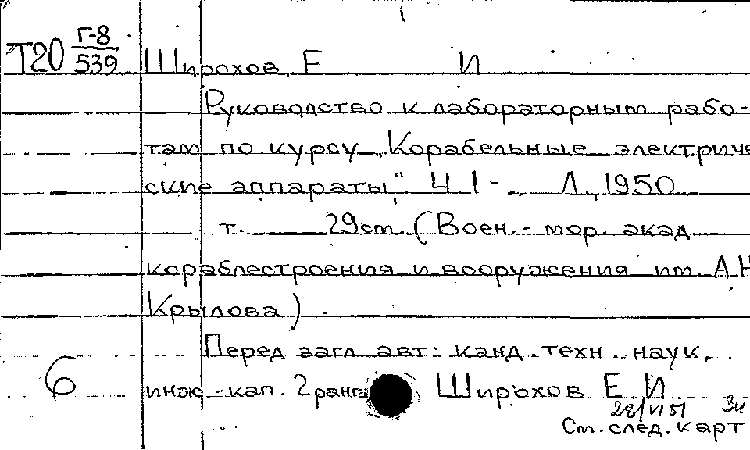 Т20 Г-8/539 Широхов Е И
Руководство к лабораторным рабо-
там по курсу „Корабельные электриче
ские аппараты" Ч 1- Л, 1950
т. 29cm. (Воен.- мор. акад
кораблестроения и вооружения им. А Н
Крылова)
Перед загл авт: канд. техн. наук,
6 инж-кап. 2 ранга Широхов Е И
28/VI 51
См. след. карт